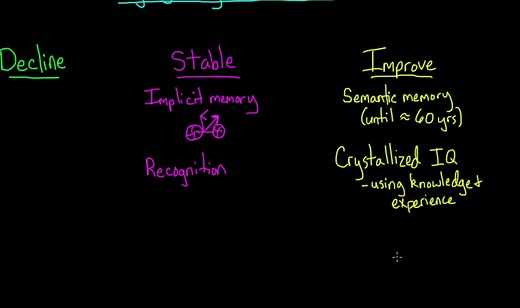 Decline
Stable
Implicit memory
Recognition
Improve
Semantic memory
(until ≈ 60 yrs)
Crystallized IQ
- using knowledge +
experience